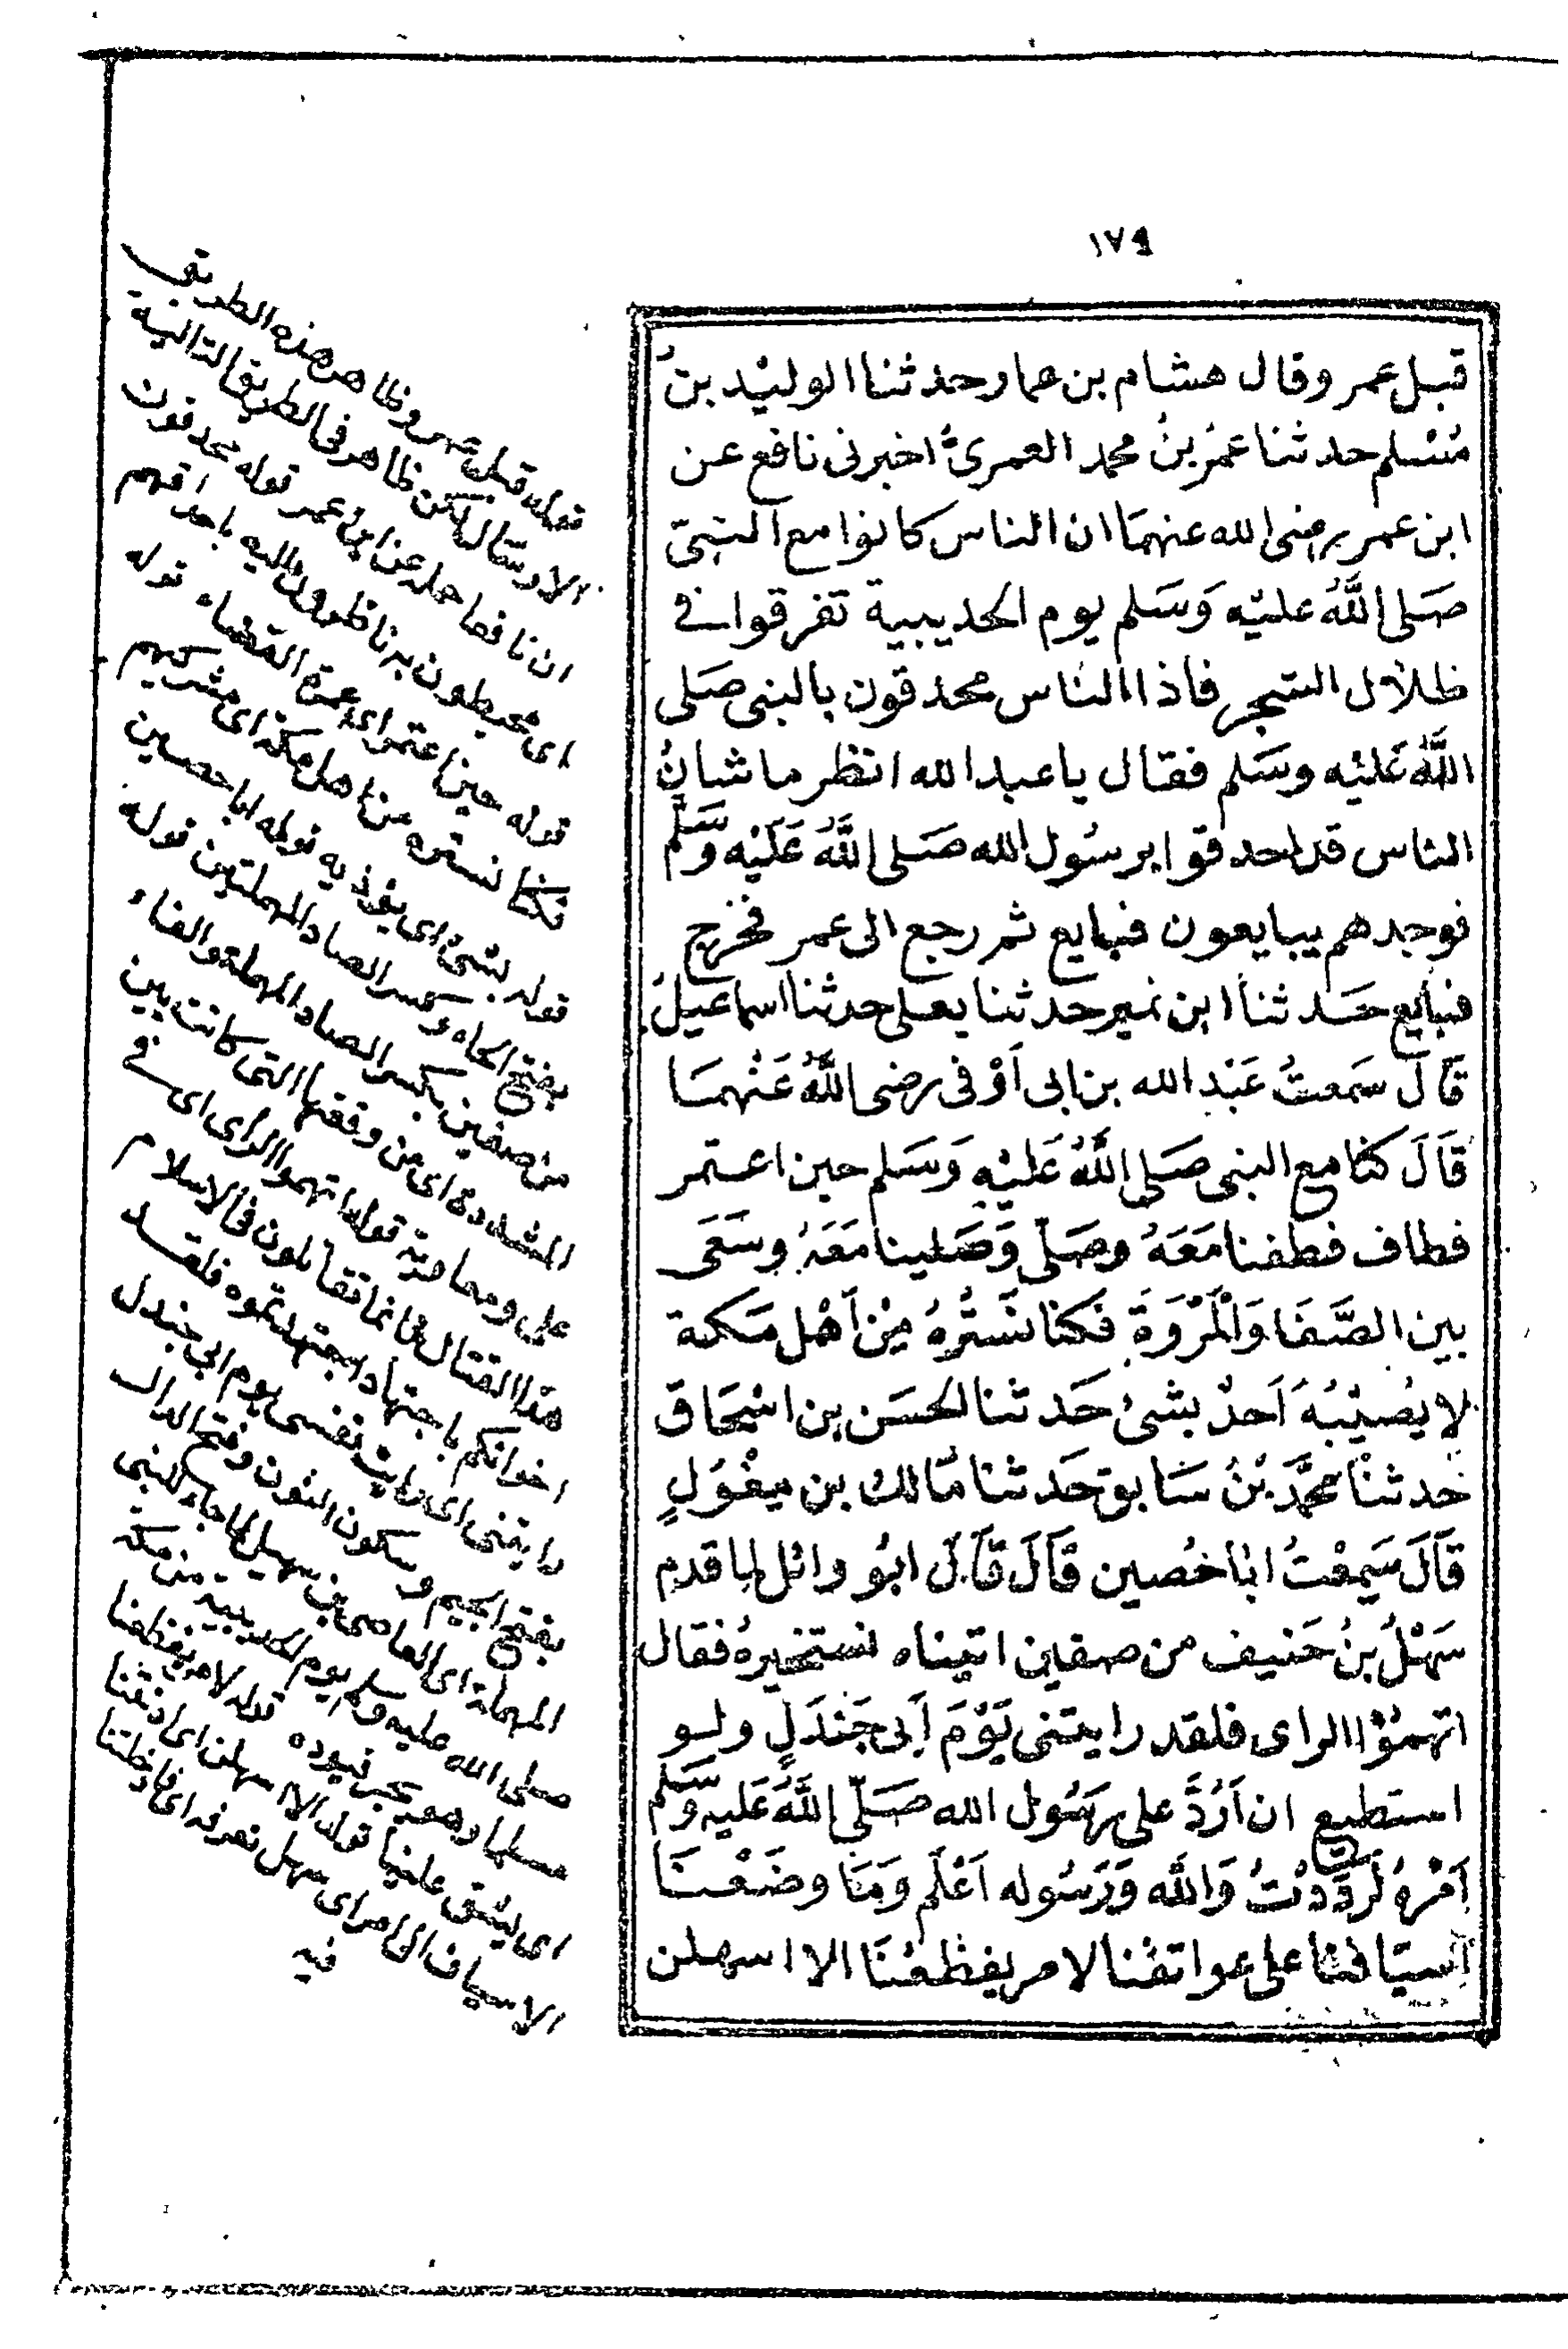 ١٧٩
قبل عمر وقال هشام بن عمار حدثنا الوليْد بنُ
مُسْلم حدثنا عمرُ بنُ محمد العمريُّ اخبرنى نافع عن
ابن عمر رضى الله عنهمَا ان الناس كانوا مع النبىّ
صَلى اللَّهُ عليْه وَسَلم يوم الحديبية تفرقوا فے
ظلال الشجر فاذا الناس محدقون بالنبى صَلى
اللَّهُ عَليْه وسَلم فقال يا عبد الله انظر ما شانُ
الناس قد احدقوا برسُول الله صَلى اللَّهُ عَلَيْه وَسَّلم
فوجدهم يبايعون فبايع ثم رجع الى عمر فخرج
فبايع حَدثنا ابن نمير حدثنا يعلى حدثنا اسماعيلُ
قَالَ سَمعتُ عَبْد الله بن ابى اَوْفى رضى اللَّهُ عَنْهمَا
قَالَ كنا مع النبى صَلى اللَّهُ عَليْهِ وَسَلم حين اعتمر
فطاف فطفنا مَعَهُ وصَلّى وَصَلينا مَعَهُ وسَعَى
بين الصَّفَا وَالْمَرْوَةَ فكنا نَسْتُرُهُ مِنْ اَهْل مَكة
لا يُصيْبُهُ اَحدٌ بشئ حَدثنا الحسَن بن اسْحَاقَ
حَدثنا محمَّد بْنُ سَابق حَدثنا مَالك بن مِغْوَلٍ
قَالَ سَمِعْتُ ابَا حُصين قَالَ قَالَ ابُو وائل لما قدم
سَهْلُ بنُ حَنيف من صفين اتيناه نستخبرهُ فقال
اتهمُوْا الراى فلقد رايتنى يَوْمَ اَبى جَنْدَلٍ ولو
استطيع ان اَرُدَّ على رَسُول الله صَلّى اللَّهُ عَليه وَسَّلم
اَمْرهُ لَرَدَدْتُ وَاللَّه وَرَسُوله اَعْلَم وَمَا وضَعْنَا
اَسيَافنَا على عواتقنا لامر يفظعُنَا الا اسهلن
قوله قبل عمر وظاهر هذه الطريق
الارسال لكن ظاهر فى الطريق الثانية
ان نافعا حمله عن ابن عمر قوله محدقون
اى محيطون به ناظرون اليه باحداقهم
قوله حين اعتمر اى عمرة القضاء قوله
فكنا نستره من اهل مكة اى مشركيهم
قوله بشئ اى يؤذيه قوله ابا حصين
بفتح الحاء وكسر الصاد المهملتين قوله
من صفين بكسر الصاد المهملة والفاء
المشددة اى من وقعتها التى كانت بين
على ومعاوية قوله اتهموا الراى اى فے
هذا القتال فانما تقاتلون فى الاسلام
اخوانكم باجتهاد اجتهدتموه فلقد
رايتنى اى رايت نفسى يوم ابى جندل
بفتح الجيم وسكون النون وفتح الدال
المهملة اى العاصى بن سهيل لما جاء للنبى
صلى الله عليه وسلم يوم الحديبية من مكة
مسلما وهو يجر قيوده قوله لامر يفظعنا
اى يشق علينا قوله الا اسهلن اى ادنتنا
الاسياف الى امر اى سهل نعرفه اى
فيه